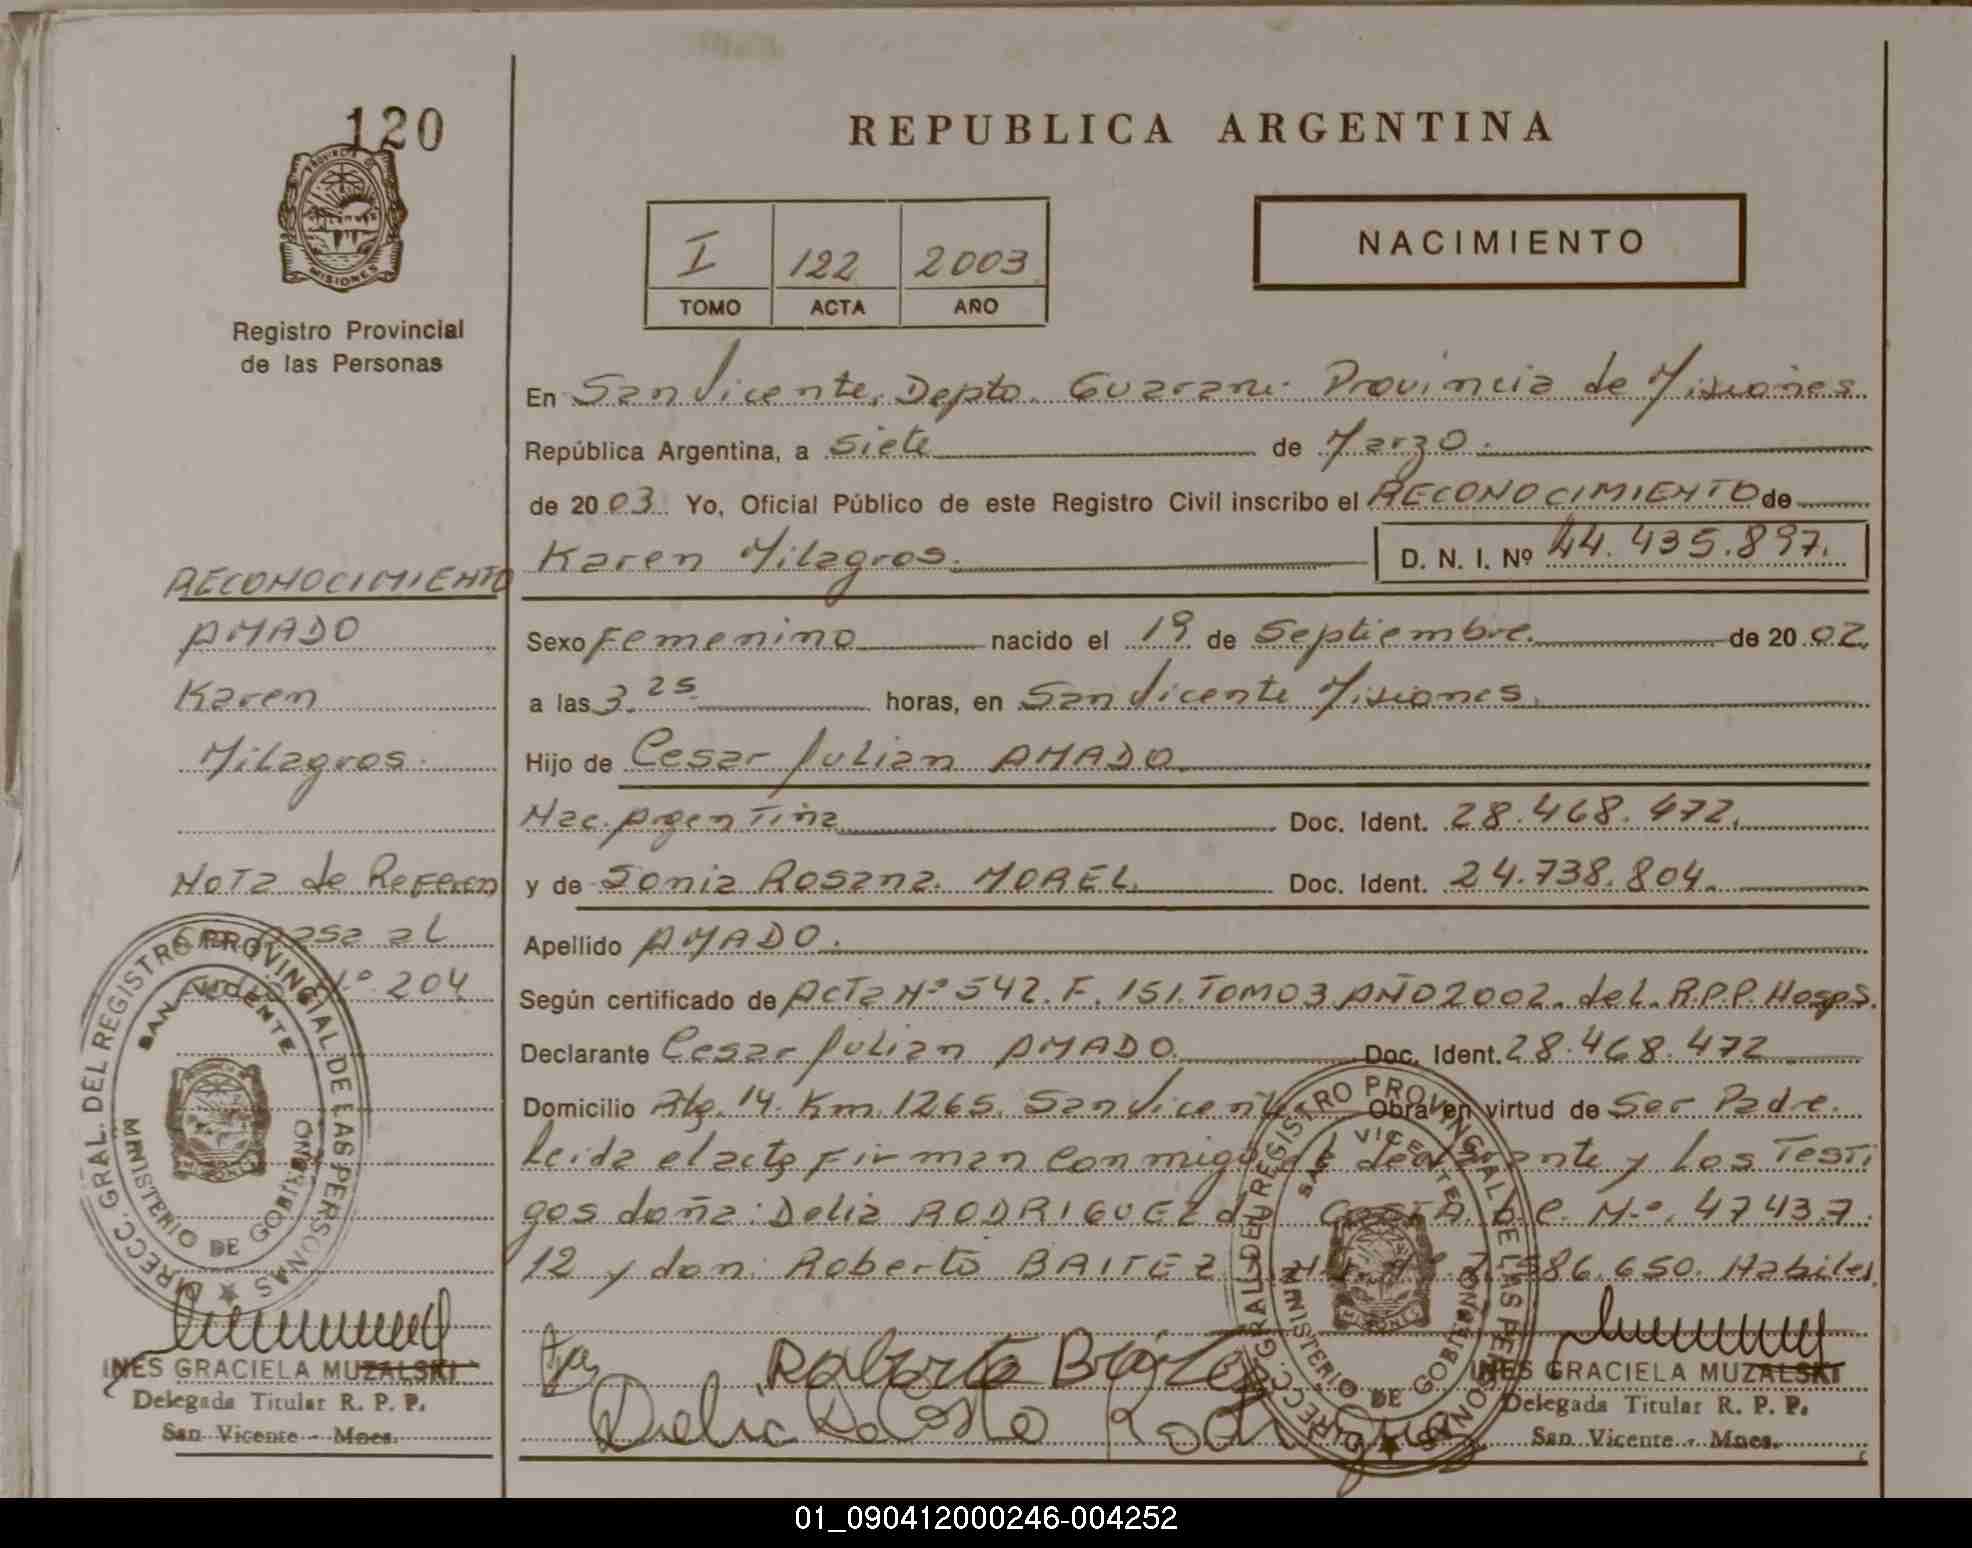 120
PROVINCIA DE
MISIONES
Registro Provincial
de las Personas
REPUBLICA ARGENTINA
I 122 2003
TOMO ACTA AÑO
NACIMIENTO
En San Vicente, Depto. Guarani. Provincia de Misiones.
República Argentina, a siete de Marzo.
de 2003. Yo, Oficial Público de este Registro Civil inscribo el RECONOCIMIENTO de
Karen Milagros. D. N. I. Nº 44.435.897.
Sexo Femenino nacido el 19 de Septiembre. de 2002.
a las 3.25 horas, en San Vicente Misiones.
Hijo de Cesar Julian AMADO
Nac. Argentina Doc. Ident. 28.468.472.
y de Sonia Rosana MOREL. Doc. Ident. 24.738.804.
Apellido AMADO.
Según certificado de Acta Nº 542. F. 151. TOMO 3 AÑO 2002. del. R.P.P. Hosp.
Declarante Cesar Julian AMADO Doc. Ident. 28.468.472
Domicilio Rta. 14. Km. 1265. San Vicente Obra en virtud de Ser Padre.
Leida el acta firman conmigo el declarante y los Testi
gos doña: Delia RODRIGUEZ COSTA. Nº. 47437
12 y don: Roberto BAITEZ 586.650. Habiles.
Roberto
Delia Da Costa
RECONOCIMIENTO
AMADO
Karen
Milagros.
Nota de Referen
pasa al
Nº 204
DIRECC. GRAL. DEL REGISTRO PROVINCIAL DE LAS PERSONAS
SAN VICENTE
MINISTERIO DE GOBIERNO
INES GRACIELA MUZALSKI
Delegada Titular R. P. P.
San Vicente - Mnes.
DIRECC. GRAL. DEL REGISTRO PROVINCIAL DE LAS PERSONAS
SAN VICENTE
MINISTERIO DE GOBIERNO
INES GRACIELA MUZALSKI
Delegada Titular R. P. P.
San Vicente - Mnes.
01_090412000246-004252